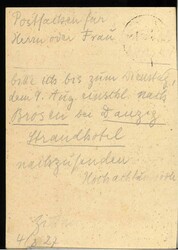 Postsachen für
Herrn oder Frau
bitte ich bis zum Dienstag,
dem 9. Aug. einschl. nach
Brosen bei Danzig
Strandhotel
nachzusenden.
Hochachtend
4/ 27